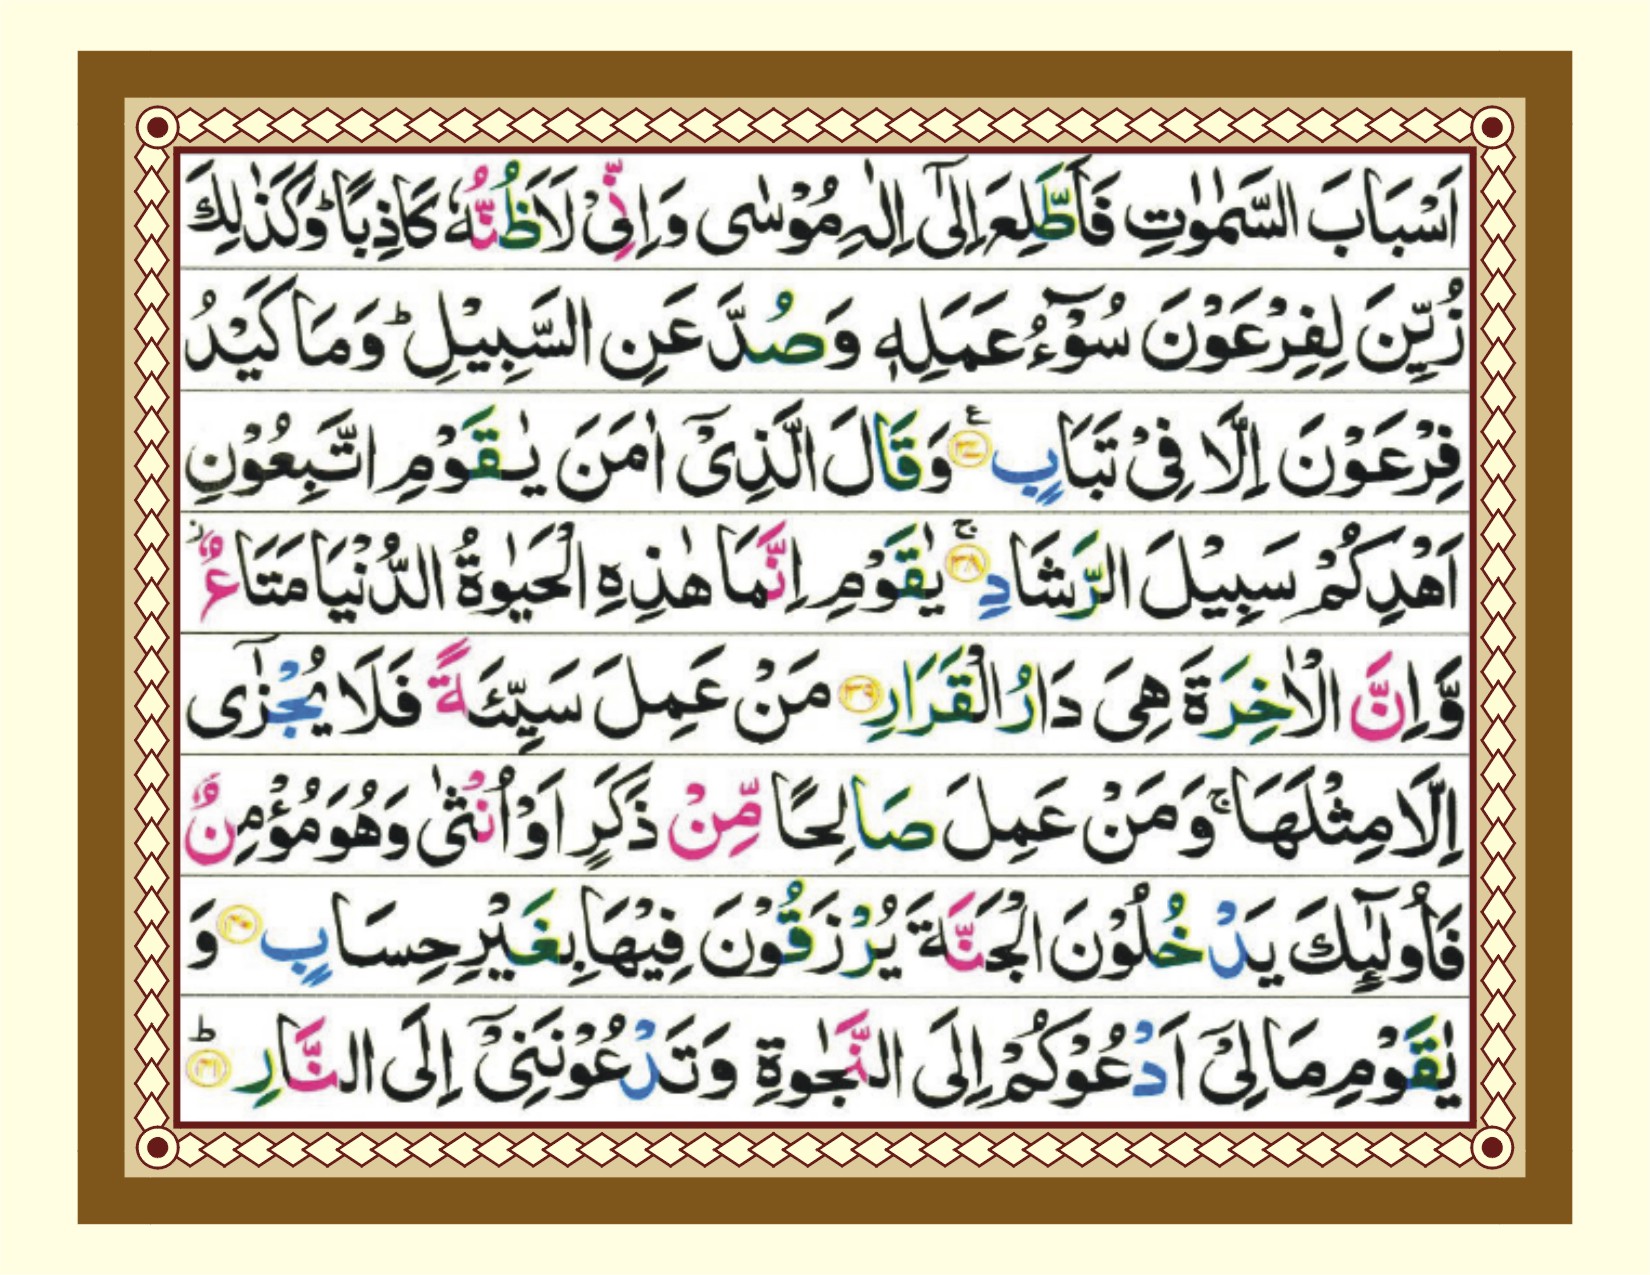 اَسْبَابَ السَّمٰوٰتِ فَاَطَّلِعَ اِلٰٓى اِلٰهِ مُوْسٰى وَاِنِّىْ لَاَظُنُّهٗ كَاذِبًا ؕ وَكَذٰلِكَ
زُيِّنَ لِفِرْعَوْنَ سُوْٓءُ عَمَلِهٖ وَصُدَّ عَنِ السَّبِيْلِ ؕ وَمَا كَيْدُ
فِرْعَوْنَ اِلَّا فِىْ تَبَابٍ ﴿۳۷﴾ ع وَقَالَ الَّذِىْۤ اٰمَنَ يٰقَوْمِ اتَّبِعُوْنِ
اَهْدِكُمْ سَبِيْلَ الرَّشَادِ ﴿۳۸﴾ ۚ يٰقَوْمِ اِنَّمَا هٰذِهِ الْحَيٰوةُ الدُّنْيَا مَتَاعٌ ز
وَّاِنَّ الْاٰخِرَةَ هِىَ دَارُ الْقَرَارِ ﴿۳۹﴾ مَنْ عَمِلَ سَيِّئَةً فَلَا يُجْزٰٓى
اِلَّا مِثْلَهَا ۚ وَمَنْ عَمِلَ صَالِحًا مِّنْ ذَكَرٍ اَوْ اُنْثٰى وَهُوَ مُؤْمِنٌ
فَاُولٰٓئِكَ يَدْخُلُوْنَ الْجَنَّةَ يُرْزَقُوْنَ فِيْهَا بِغَيْرِ حِسَابٍ ﴿۴۰﴾ وَ
يٰقَوْمِ مَا لِىْۤ اَدْعُوْكُمْ اِلَى النَّجٰوةِ وَتَدْعُوْنَنِىْۤ اِلَى النَّارِ ﴿۴۱﴾ ؕ